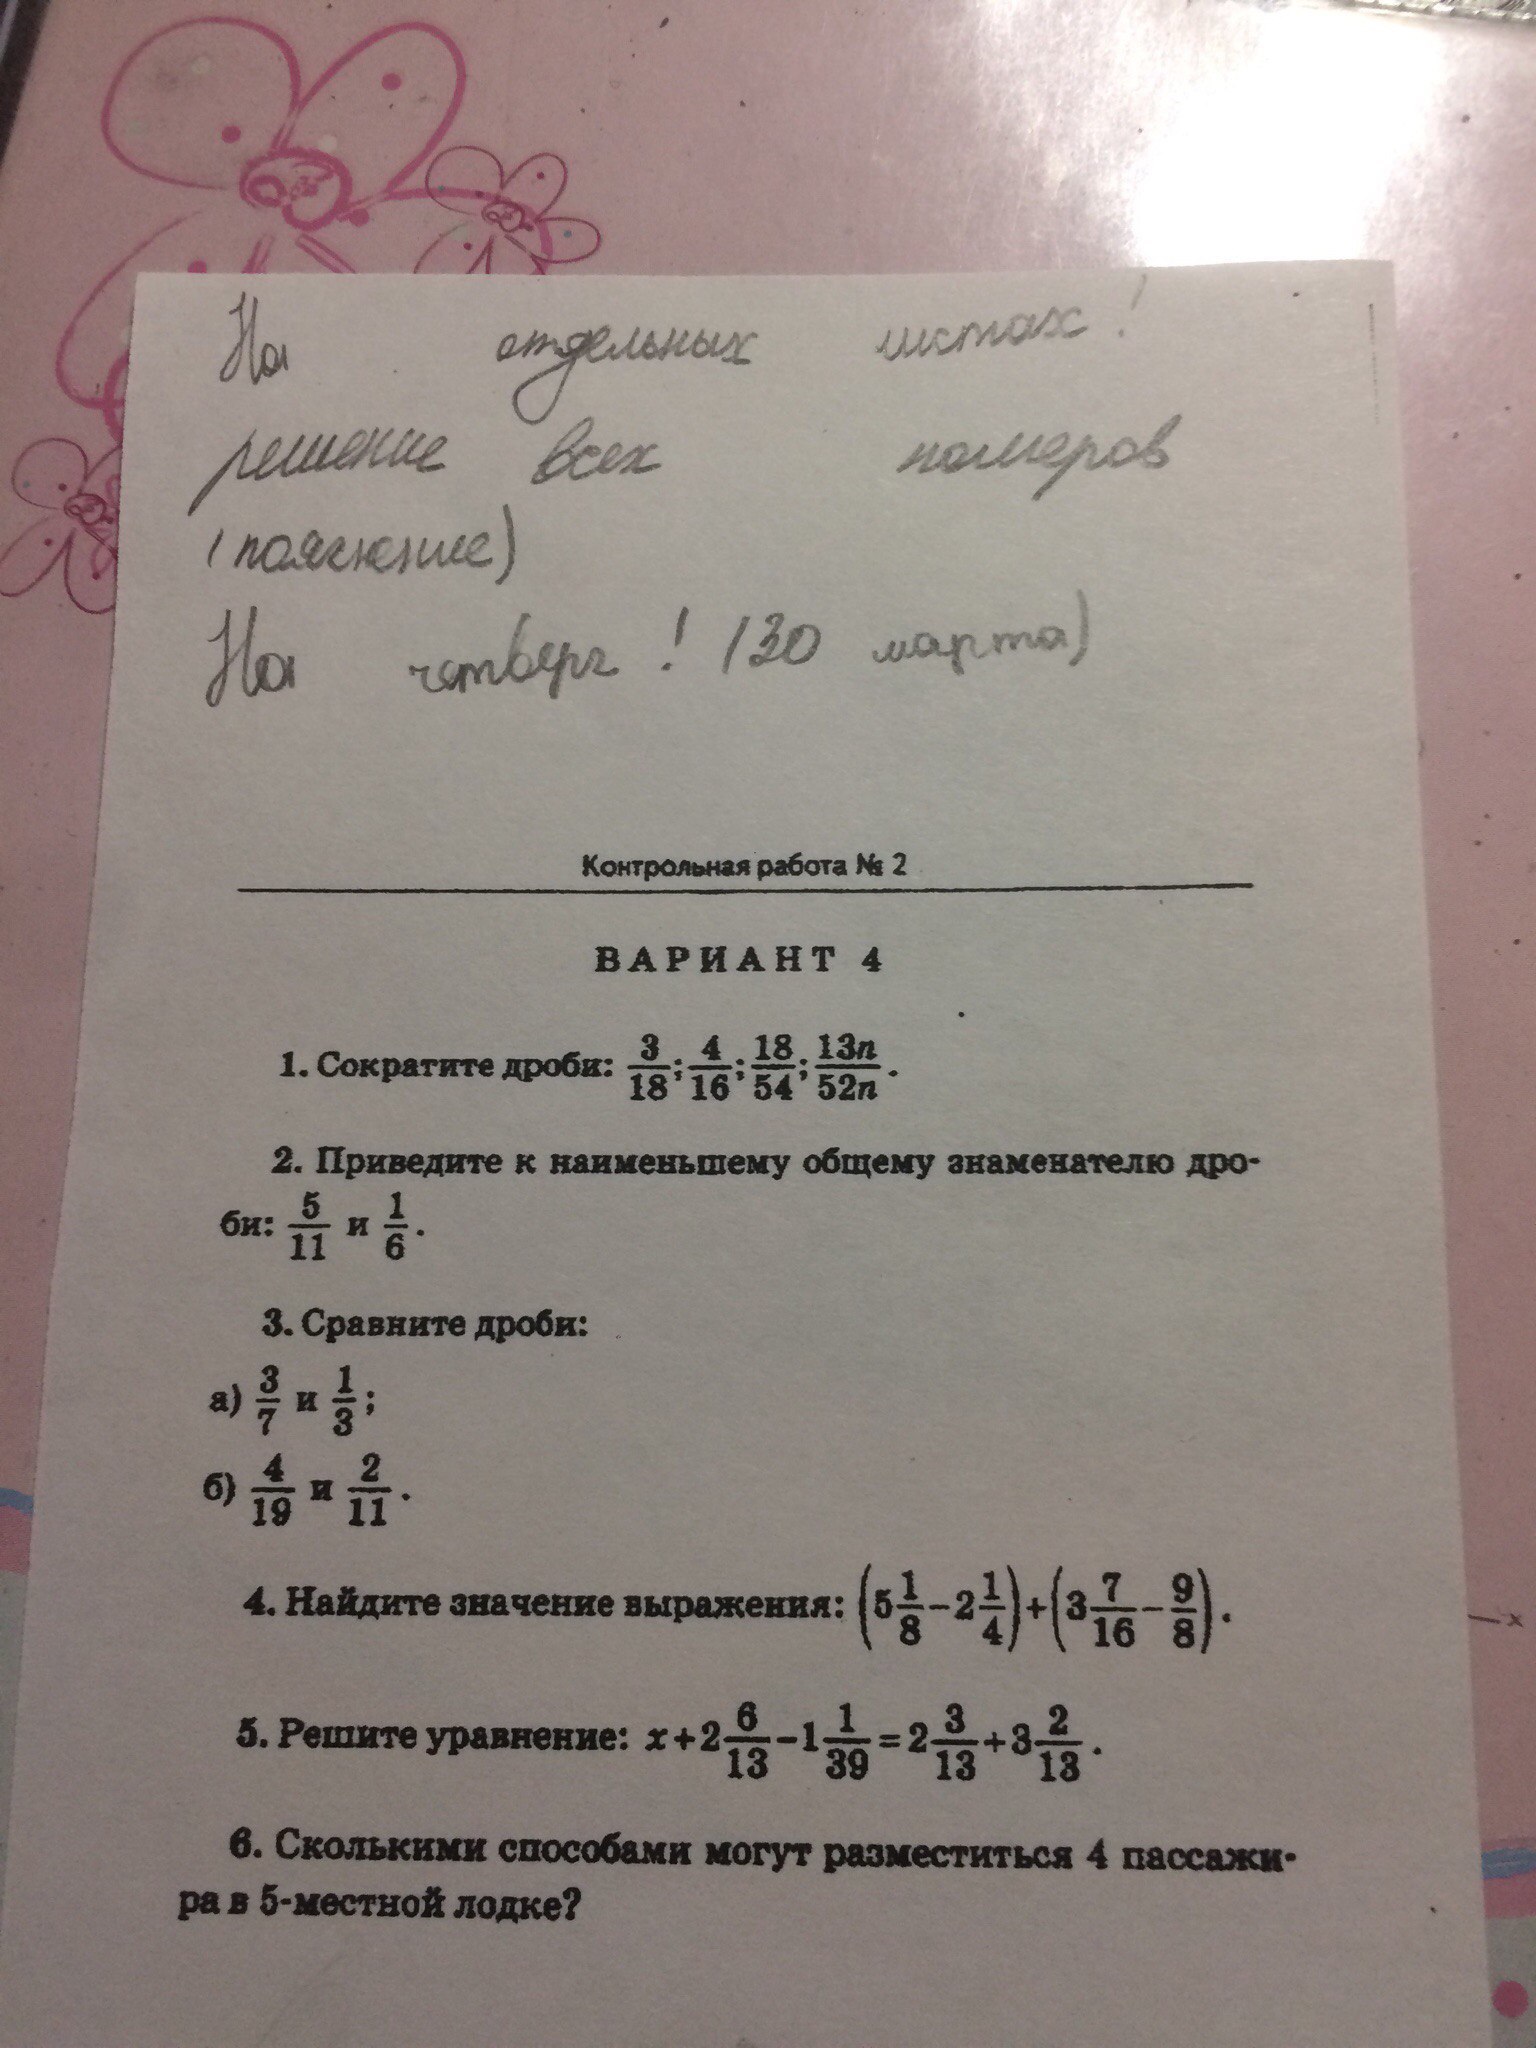 На отдельных листах!
решение всех номеров
(пояснение)
На четверг! (30 марта)
Контрольная работа № 2
ВАРИАНТ 4
1. Сократите дроби: 3/18; 4/16; 18/54; 13n/52n.
2. Приведите к наименьшему общему знаменателю дро-
би: 5/11 и 1/6.
3. Сравните дроби:
а) 3/7 и 1/3;
б) 4/19 и 2/11.
4. Найдите значение выражения: (5 1/8 − 2 1/4) + (3 7/16 − 9/8).
5. Решите уравнение: x + 2 6/13 − 1 1/39 = 2 3/13 + 3 2/13.
6. Сколькими способами могут разместиться 4 пассажи-
ра в 5-местной лодке?